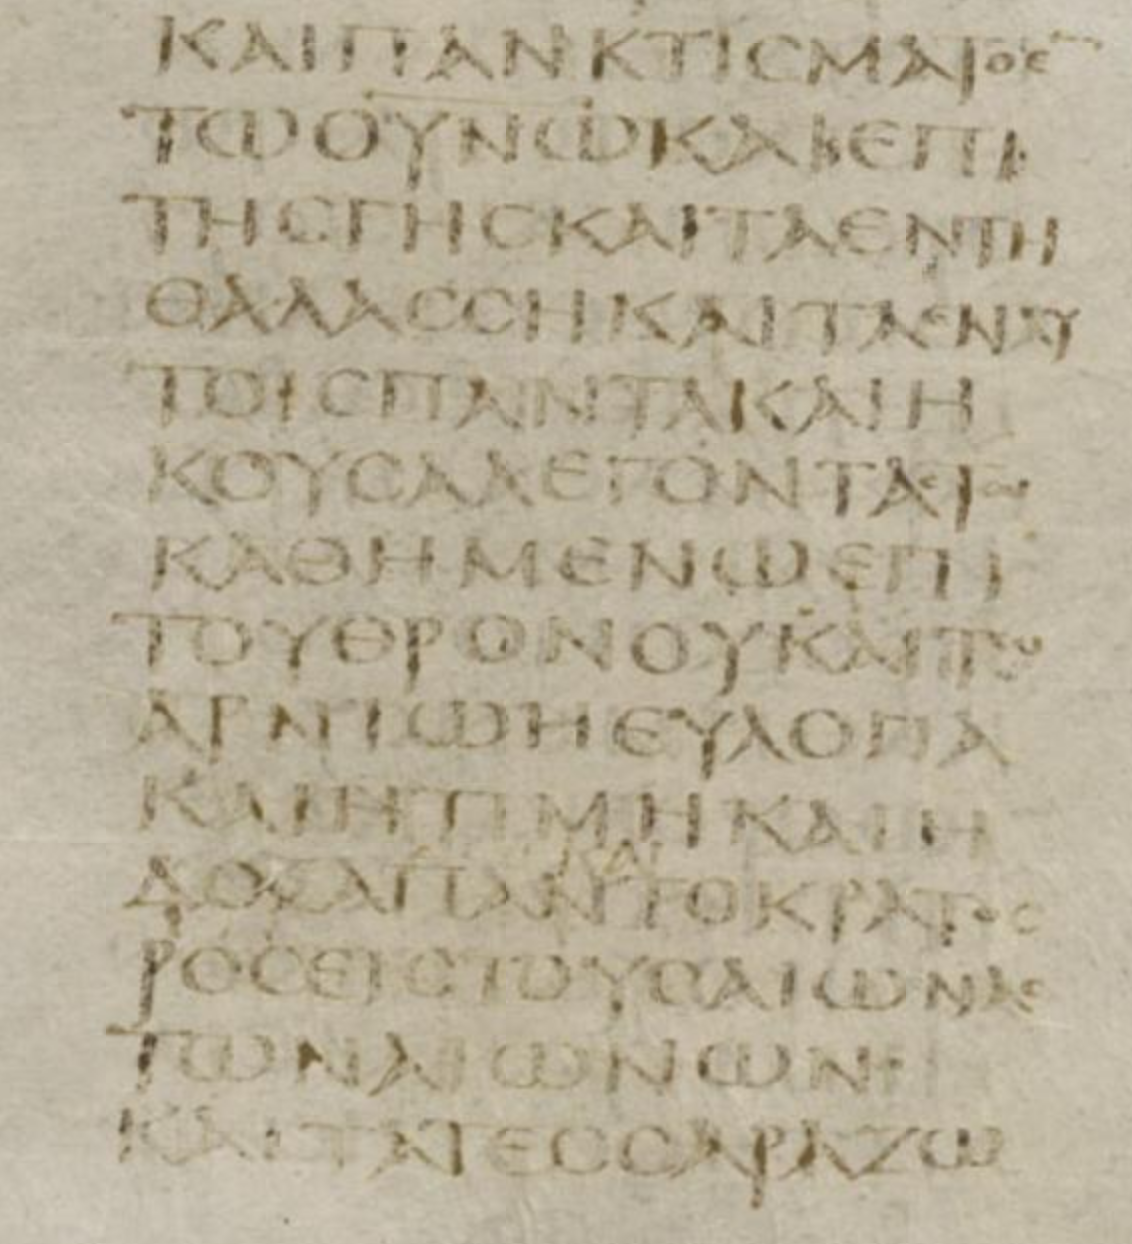 ΚΑΙΠΑΝΚΤΙϹΜΑΤΟΕ
ΤΩΟΥΝΩΚΑΙΕΠΙ
ΤΗϹΓΗϹΚΑΙΤΑΕΝΤΗ
ΘΑΛΑϹϹΗΚΑΙΤΑΕΝΑΥ
ΤΟΙϹΠΑΝΤΑΚΑΙΗ
ΚΟΥϹΑΛΕΓΟΝΤΑϹΤΩ
ΚΑΘΗΜΕΝΩΕΠΙ
ΤΟΥΘΡΟΝΟΥΚΑΙΤΩ
ΑΡΝΙΩΗΕΥΛΟΓΙΑ
ΚΑΙΗΤΙΜΗΚΑΙΗ
ΔΟΞΑΠΑΝΤΟΚΡΑΤΟϹ
ΡΟϹΕΙϹΤΟΥϹΑΙΩΝΑϹ
ΤΩΝΑΙΩΝΩΝ
ΚΑΙΤΑΤΕϹϹΑΡΑΖΩ